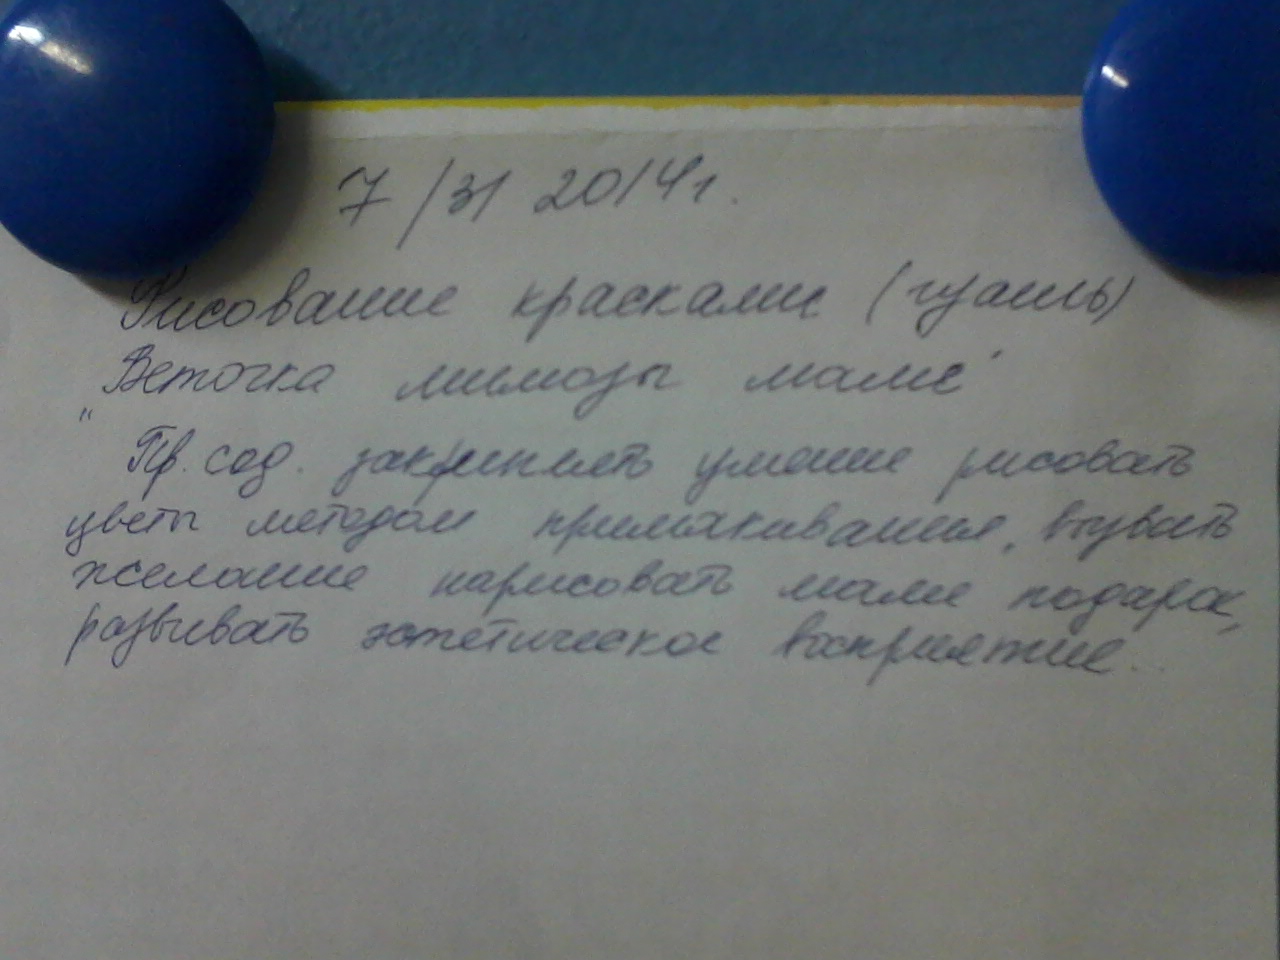 7/3/ 2014г.
Рисование красками (гуашь)
"Веточка мимозы маме"
Пр. сод. закреплять умение рисовать
цветы методом примакивания, вызвать
желание нарисовать маме подарок,
развивать эстетическое восприятие...